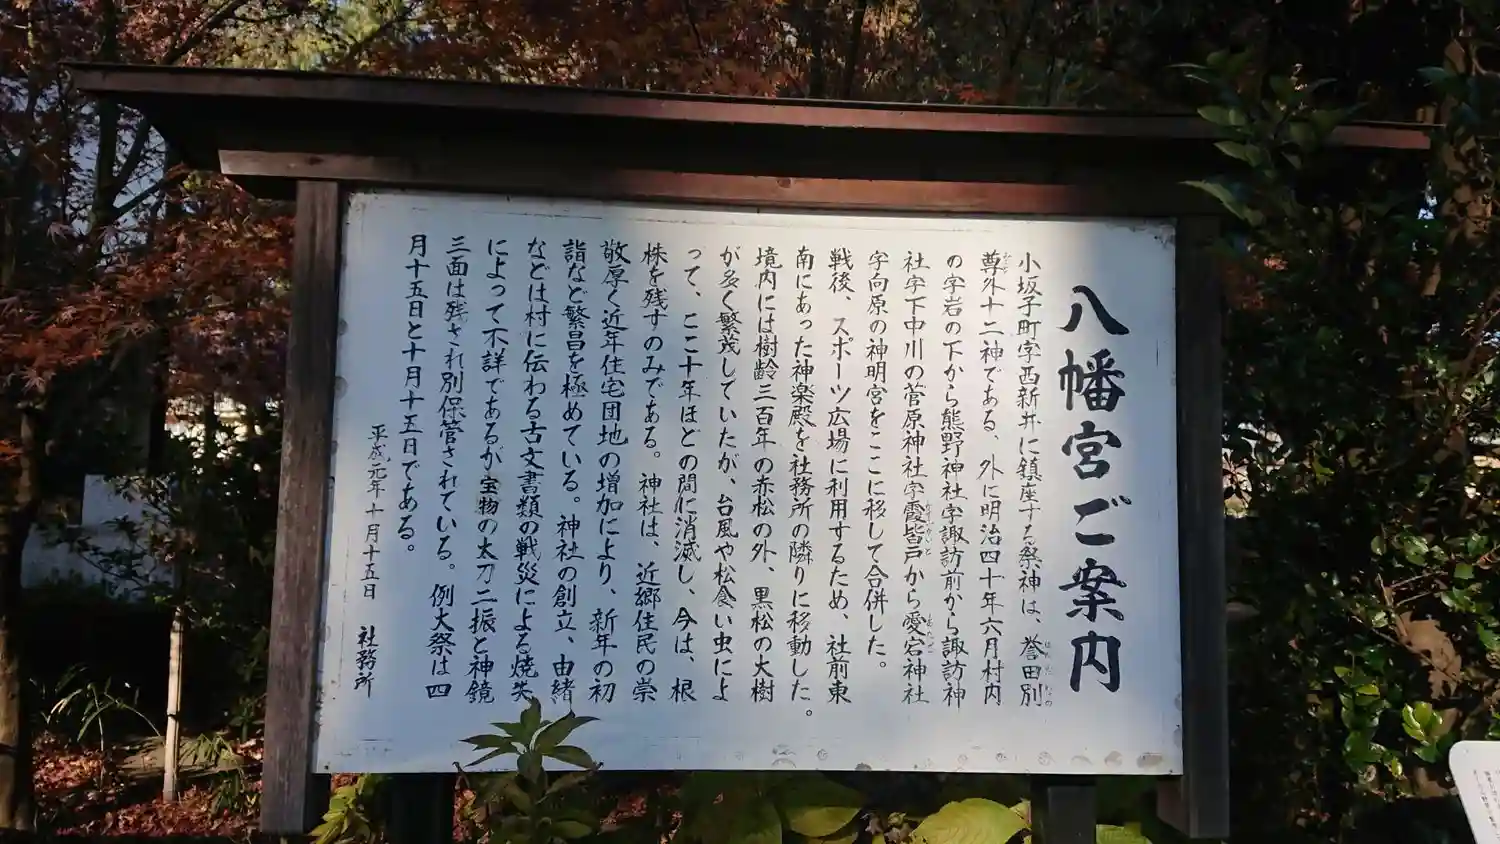 八幡宮ご案内
小坂子町字西新井に鎮座する祭神は、誉田別
尊外十二神である、外に明治四十年六月村内
の字岩の下から熊野神社字諏訪前から諏訪神
社字下中川の菅原神社字霞皆戸から愛宕神社
字向原の神明宮をここに移して合併した。
戦後、スポーツ広場に利用するため、社前東
南にあった神楽殿を社務所の隣りに移動した。
境内には樹齢三百年の赤松の外、黒松の大樹
が多く繁茂していたが、台風や松食い虫によ
って、ここ十年ほどの間に消滅し、今は、根
株を残すのみである。神社は、近郷住民の崇
敬厚く近年住宅団地の増加により、新年の初
詣など繁昌を極めている。神社の創立、由緒
などは村に伝わる古文書類の戦災による焼失
によって不詳であるが宝物の太刀二振と神鏡
三面は残され別保管されている。例大祭は四
月十五日と十月十五日である。
平成元年十月十五日 社務所